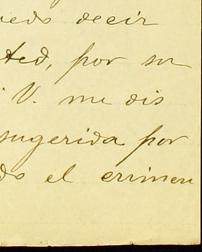 uedo decir
ted, por su
i V. me dis
sugerida por
do el crimen